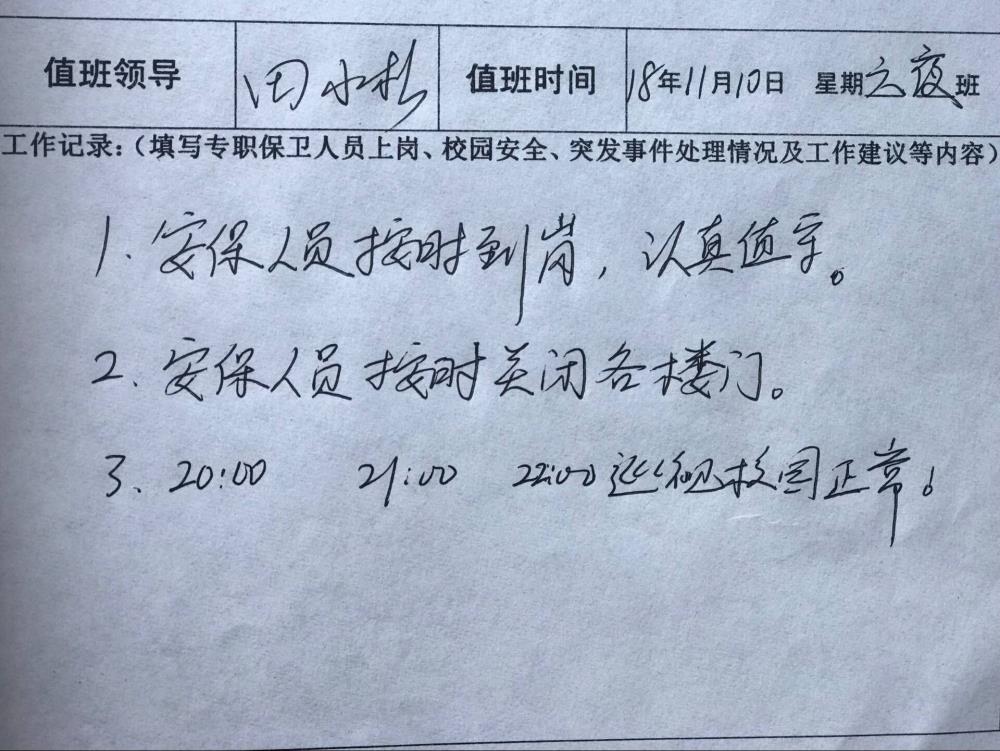 值班领导 田小杉 值班时间 18年11月10日 星期六夜班
工作记录:(填写专职保卫人员上岗、校园安全、突发事件处理情况及工作建议等内容)
1. 安保人员按时到岗,认真值守。
2. 安保人员按时关闭各楼门。
3、20:00 21:00 22:00巡视校园正常。